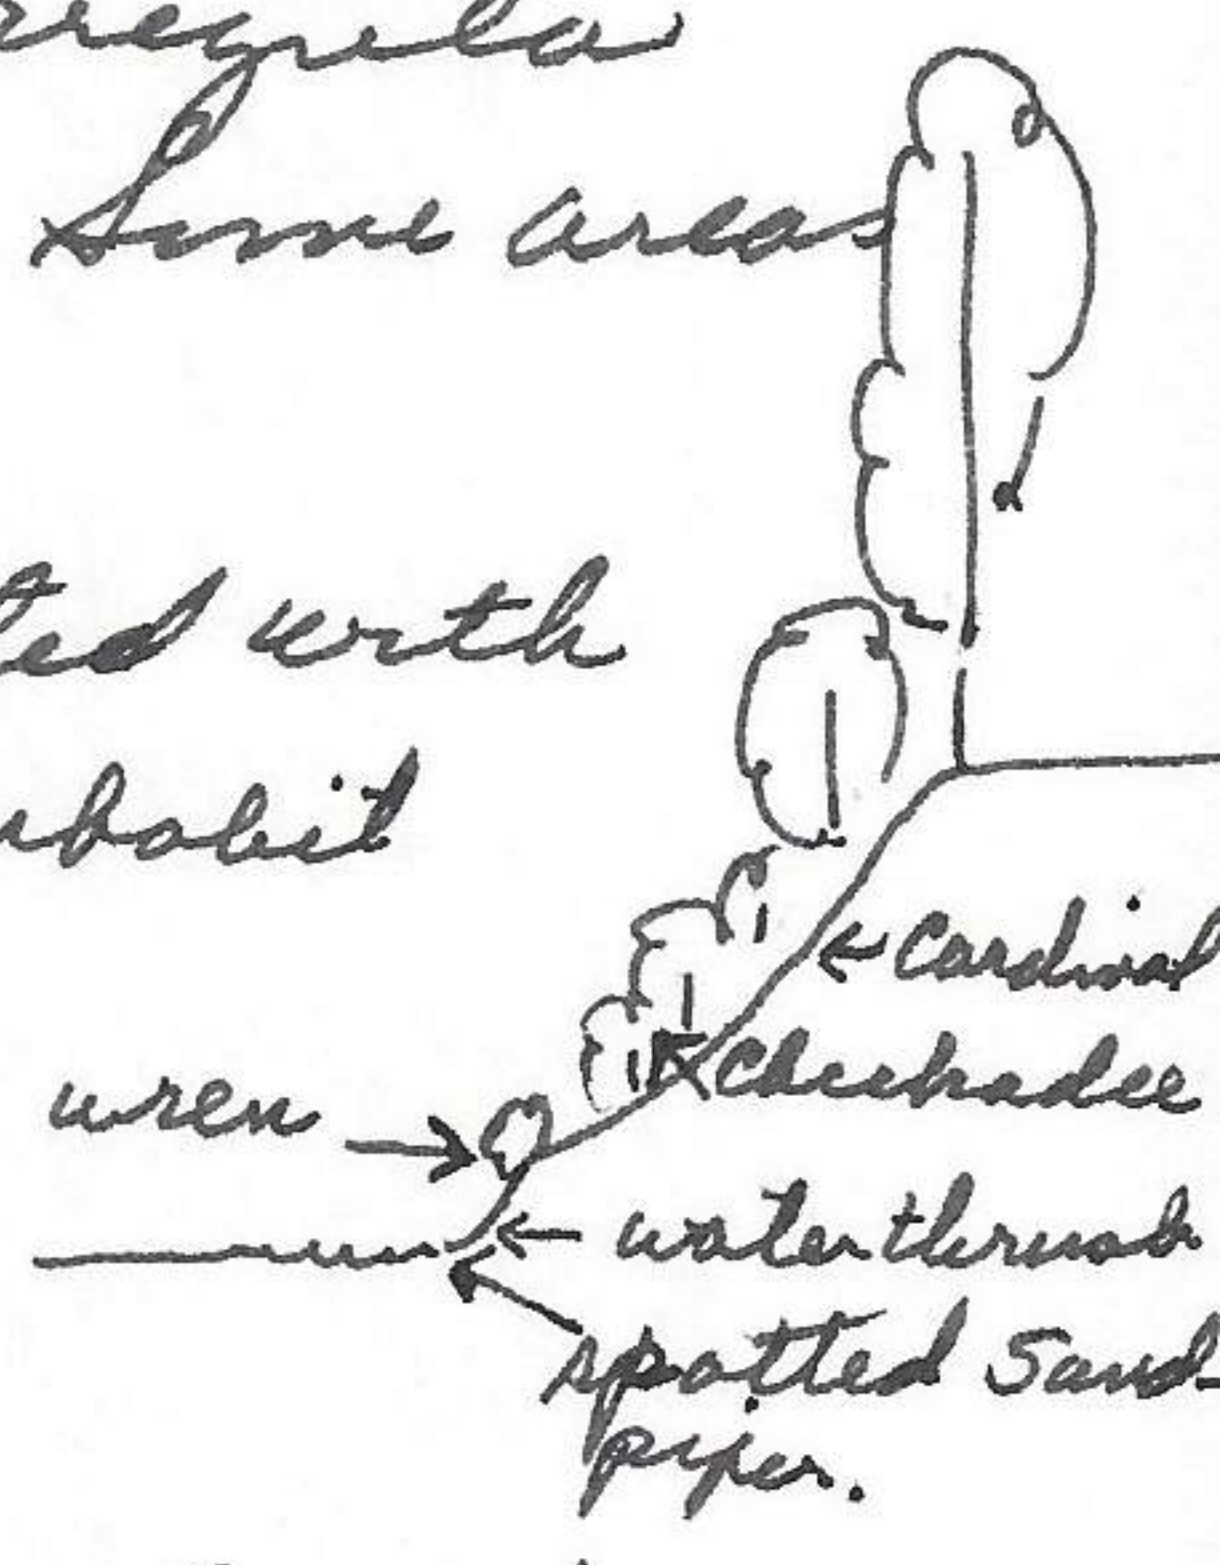 rregula
Some areas
ted with
habit
Cardinal
Chickadee
wren
waterthrush
spotted Sand-
piper.